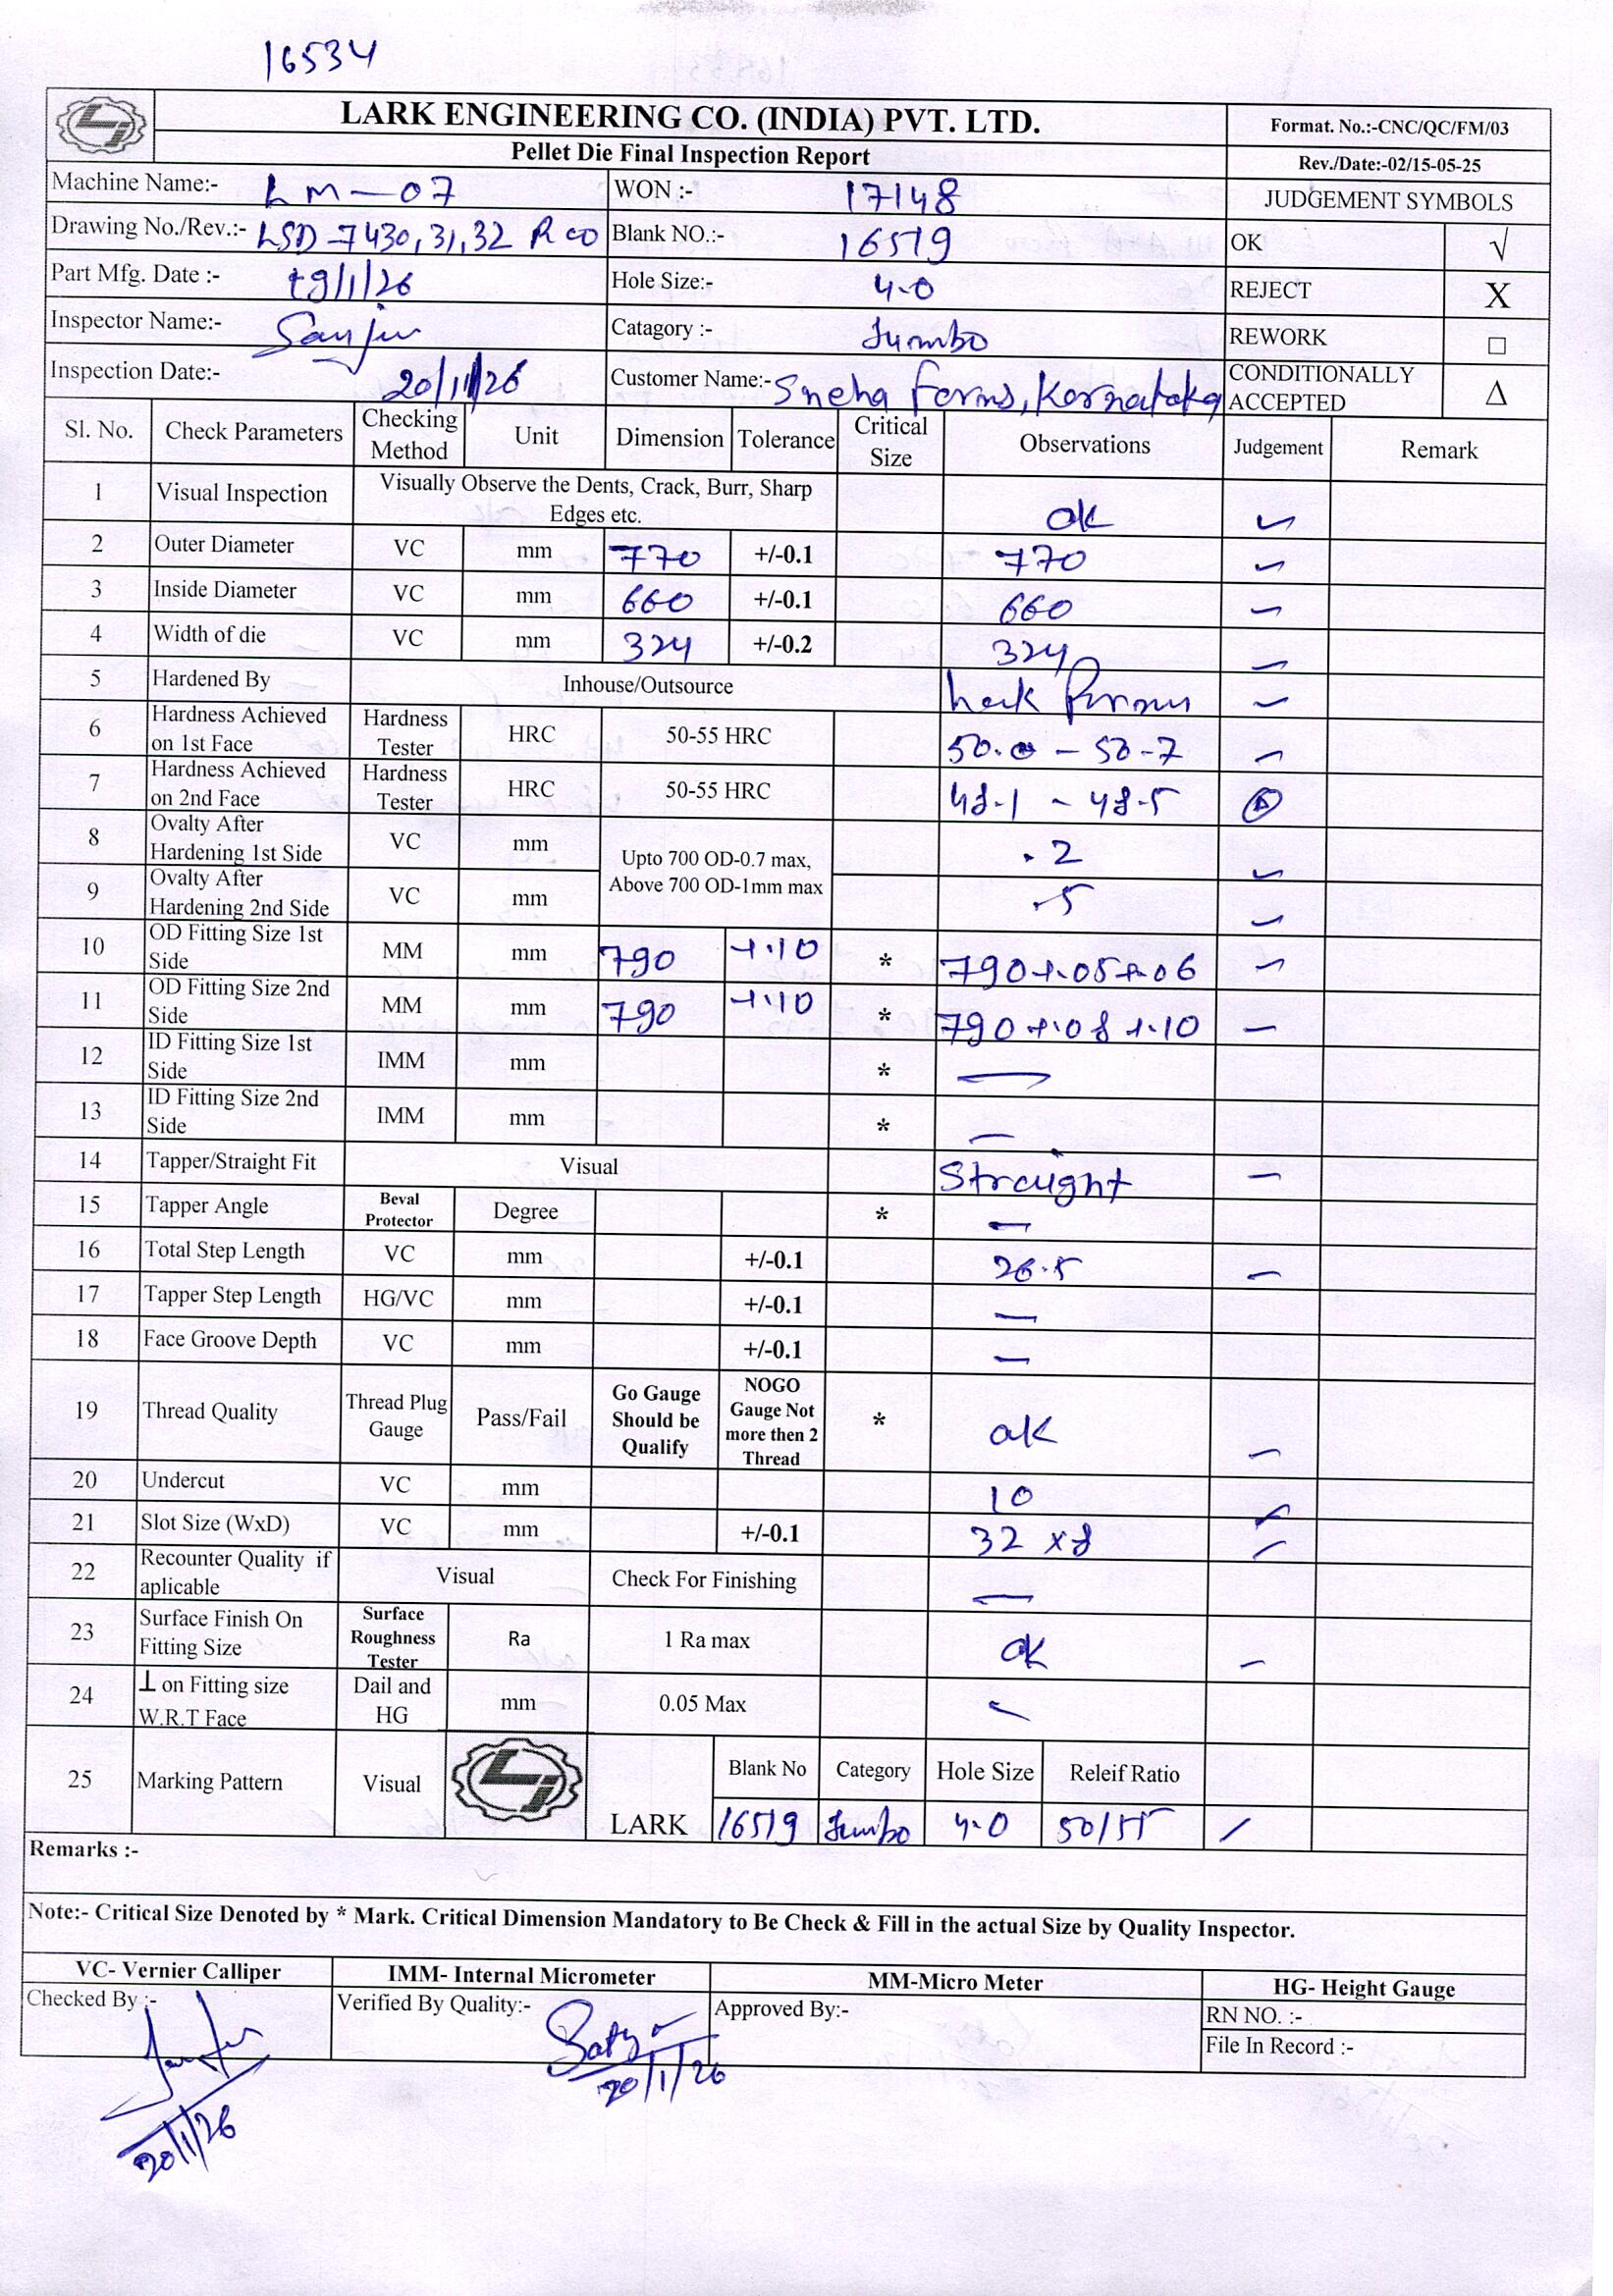 16534
LARK ENGINEERING CO. (INDIA) PVT. LTD.
Format. No.:-CNC/QC/FM/03
Pellet Die Final Inspection Report
Rev./Date:-02/15-05-25
Machine Name:- LM-07 WON :- 17148 JUDGEMENT SYMBOLS
Drawing No./Rev.:- LSD-7430,31,32 R00 Blank NO.:- 16519 OK √
Part Mfg. Date :- 19/1/26 Hole Size:- 4.0 REJECT X
Inspector Name:- Sanjiv Catagory :- Jumbo REWORK □
Inspection Date:- 20/1/26 Customer Name:- Sneha Farms, Karnataka CONDITIONALLY ACCEPTED Δ
Sl. No. Check Parameters Checking Method Unit Dimension Tolerance Critical Size Observations Judgement Remark
1 Visual Inspection Visually Observe the Dents, Crack, Burr, Sharp Edges etc. ok ✓
2 Outer Diameter VC mm 770 +/-0.1 770 ✓
3 Inside Diameter VC mm 660 +/-0.1 660 ✓
4 Width of die VC mm 324 +/-0.2 324 ✓
5 Hardened By Inhouse/Outsource ✓
6 Hardness Achieved on 1st Face Hardness Tester HRC 50-55 HRC 50.0 - 50-7 ✓
7 Hardness Achieved on 2nd Face Hardness Tester HRC 50-55 HRC 48-1 - 48-5 Δ
8 Ovalty After Hardening 1st Side VC mm Upto 700 OD-0.7 max, Above 700 OD-1mm max .2 ✓
9 Ovalty After Hardening 2nd Side VC mm .5 ✓
10 OD Fitting Size 1st Side MM mm 790 +.10 * 790+.05+.06 ✓
11 OD Fitting Size 2nd Side MM mm 790 +.10 * 790+.08+.10 ✓
12 ID Fitting Size 1st Side IMM mm * —
13 ID Fitting Size 2nd Side IMM mm * —
14 Tapper/Straight Fit Visual Straight ✓
15 Tapper Angle Beval Protector Degree * —
16 Total Step Length VC mm +/-0.1 26.5 ✓
17 Tapper Step Length HG/VC mm +/-0.1 —
18 Face Groove Depth VC mm +/-0.1 —
19 Thread Quality Thread Plug Gauge Pass/Fail Go Gauge Should be Qualify NOGO Gauge Not more then 2 Thread * ok ✓
20 Undercut VC mm 10 ✓
21 Slot Size (WxD) VC mm +/-0.1 32 x8 ✓
22 Recounter Quality if aplicable Visual Check For Finishing —
23 Surface Finish On Fitting Size Surface Roughness Tester Ra 1 Ra max ok ✓
24 ⊥ on Fitting size W.R.T Face Dail and HG mm 0.05 Max —
25 Marking Pattern Visual LARK Blank No Category Hole Size Releif Ratio
16519 Jumbo 4.0 50/55 ✓
Remarks :-
Note:- Critical Size Denoted by * Mark. Critical Dimension Mandatory to Be Check & Fill in the actual Size by Quality Inspector.
VC- Vernier Calliper IMM- Internal Micrometer MM-Micro Meter HG- Height Gauge
Checked By :- Verified By Quality:- Satya Approved By:- RN NO. :-
File In Record :-
20/1/26
20/1/26